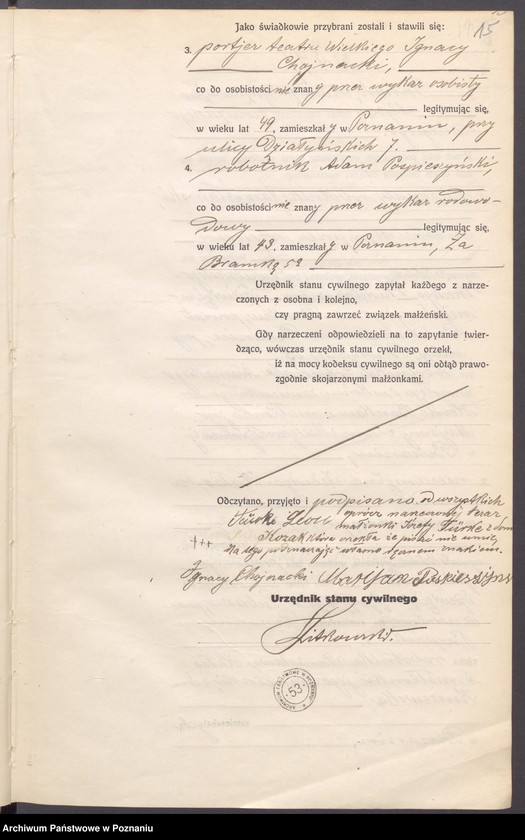 15
Jako świadkowie przybrani zostali i stawili się:
3. portjer teatru Wielkiego Ignacy
Chojnacki,
co do osobistości nie znany przez wykaz osobisty
legitymując się,
w wieku lat 49, zamieszkały w Poznaniu, przy
ulicy Działyńskich 7.
4. robotnik Adam Pospieszyński,
co do osobistości nie znany przez wykaz rodowo-
dowy legitymując się,
w wieku lat 43, zamieszkały w Poznaniu, Za
Bramką 5
Urzędnik stanu cywilnego zapytał każdego z narze-
czonych z osobna i kolejno,
czy pragną zawrzeć związek małżeński.
Gdy narzeczeni odpowiedzieli na to zapytanie twier-
dząco, wówczas urzędnik stanu cywilnego orzekł,
iż na mocy kodeksu cywilnego są oni odtąd prawo-
zgodnie skojarzonymi małżonkami.
Odczytano, przyjęto i podpisano od wszystkich
oprócz narzeczonej teraz
małżonki Türke z domu
Türke
Kozak która orzekła że pisać nie umie,
+++
własno znakiem.
Ignacy Chojnacki
Urzędnik stanu cywilnego
ARCHIWUM PAŃSTWOWE W POZNANIU
53
Archiwum Państwowe w Poznaniu